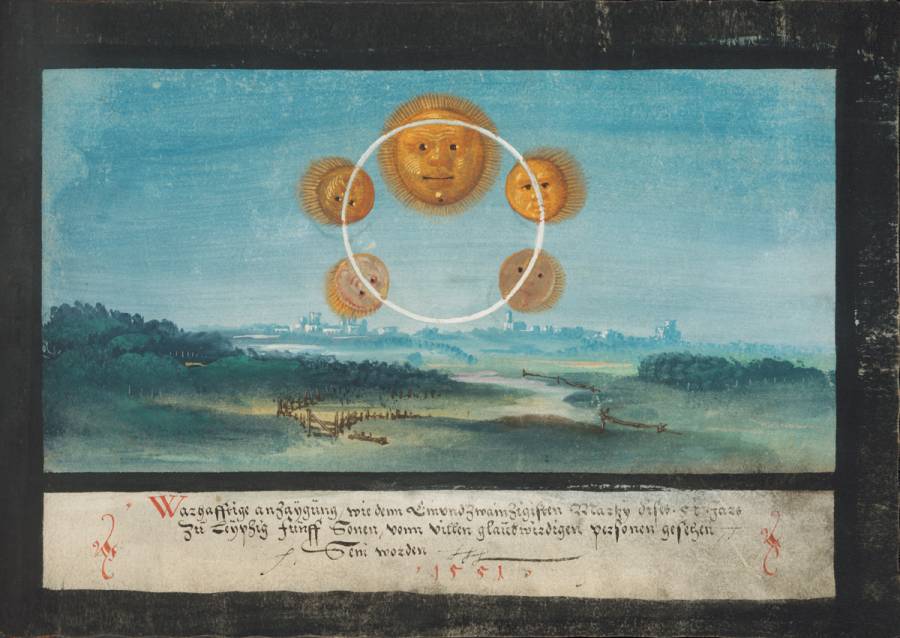 Warhafftige anzaygung, wie dem Einundzwainzigisten Martzy dises 51 Jars
Zu Leyphig funff Sonen, vonn villen glaubwirdigen personen gesehen
Sein worden
1551